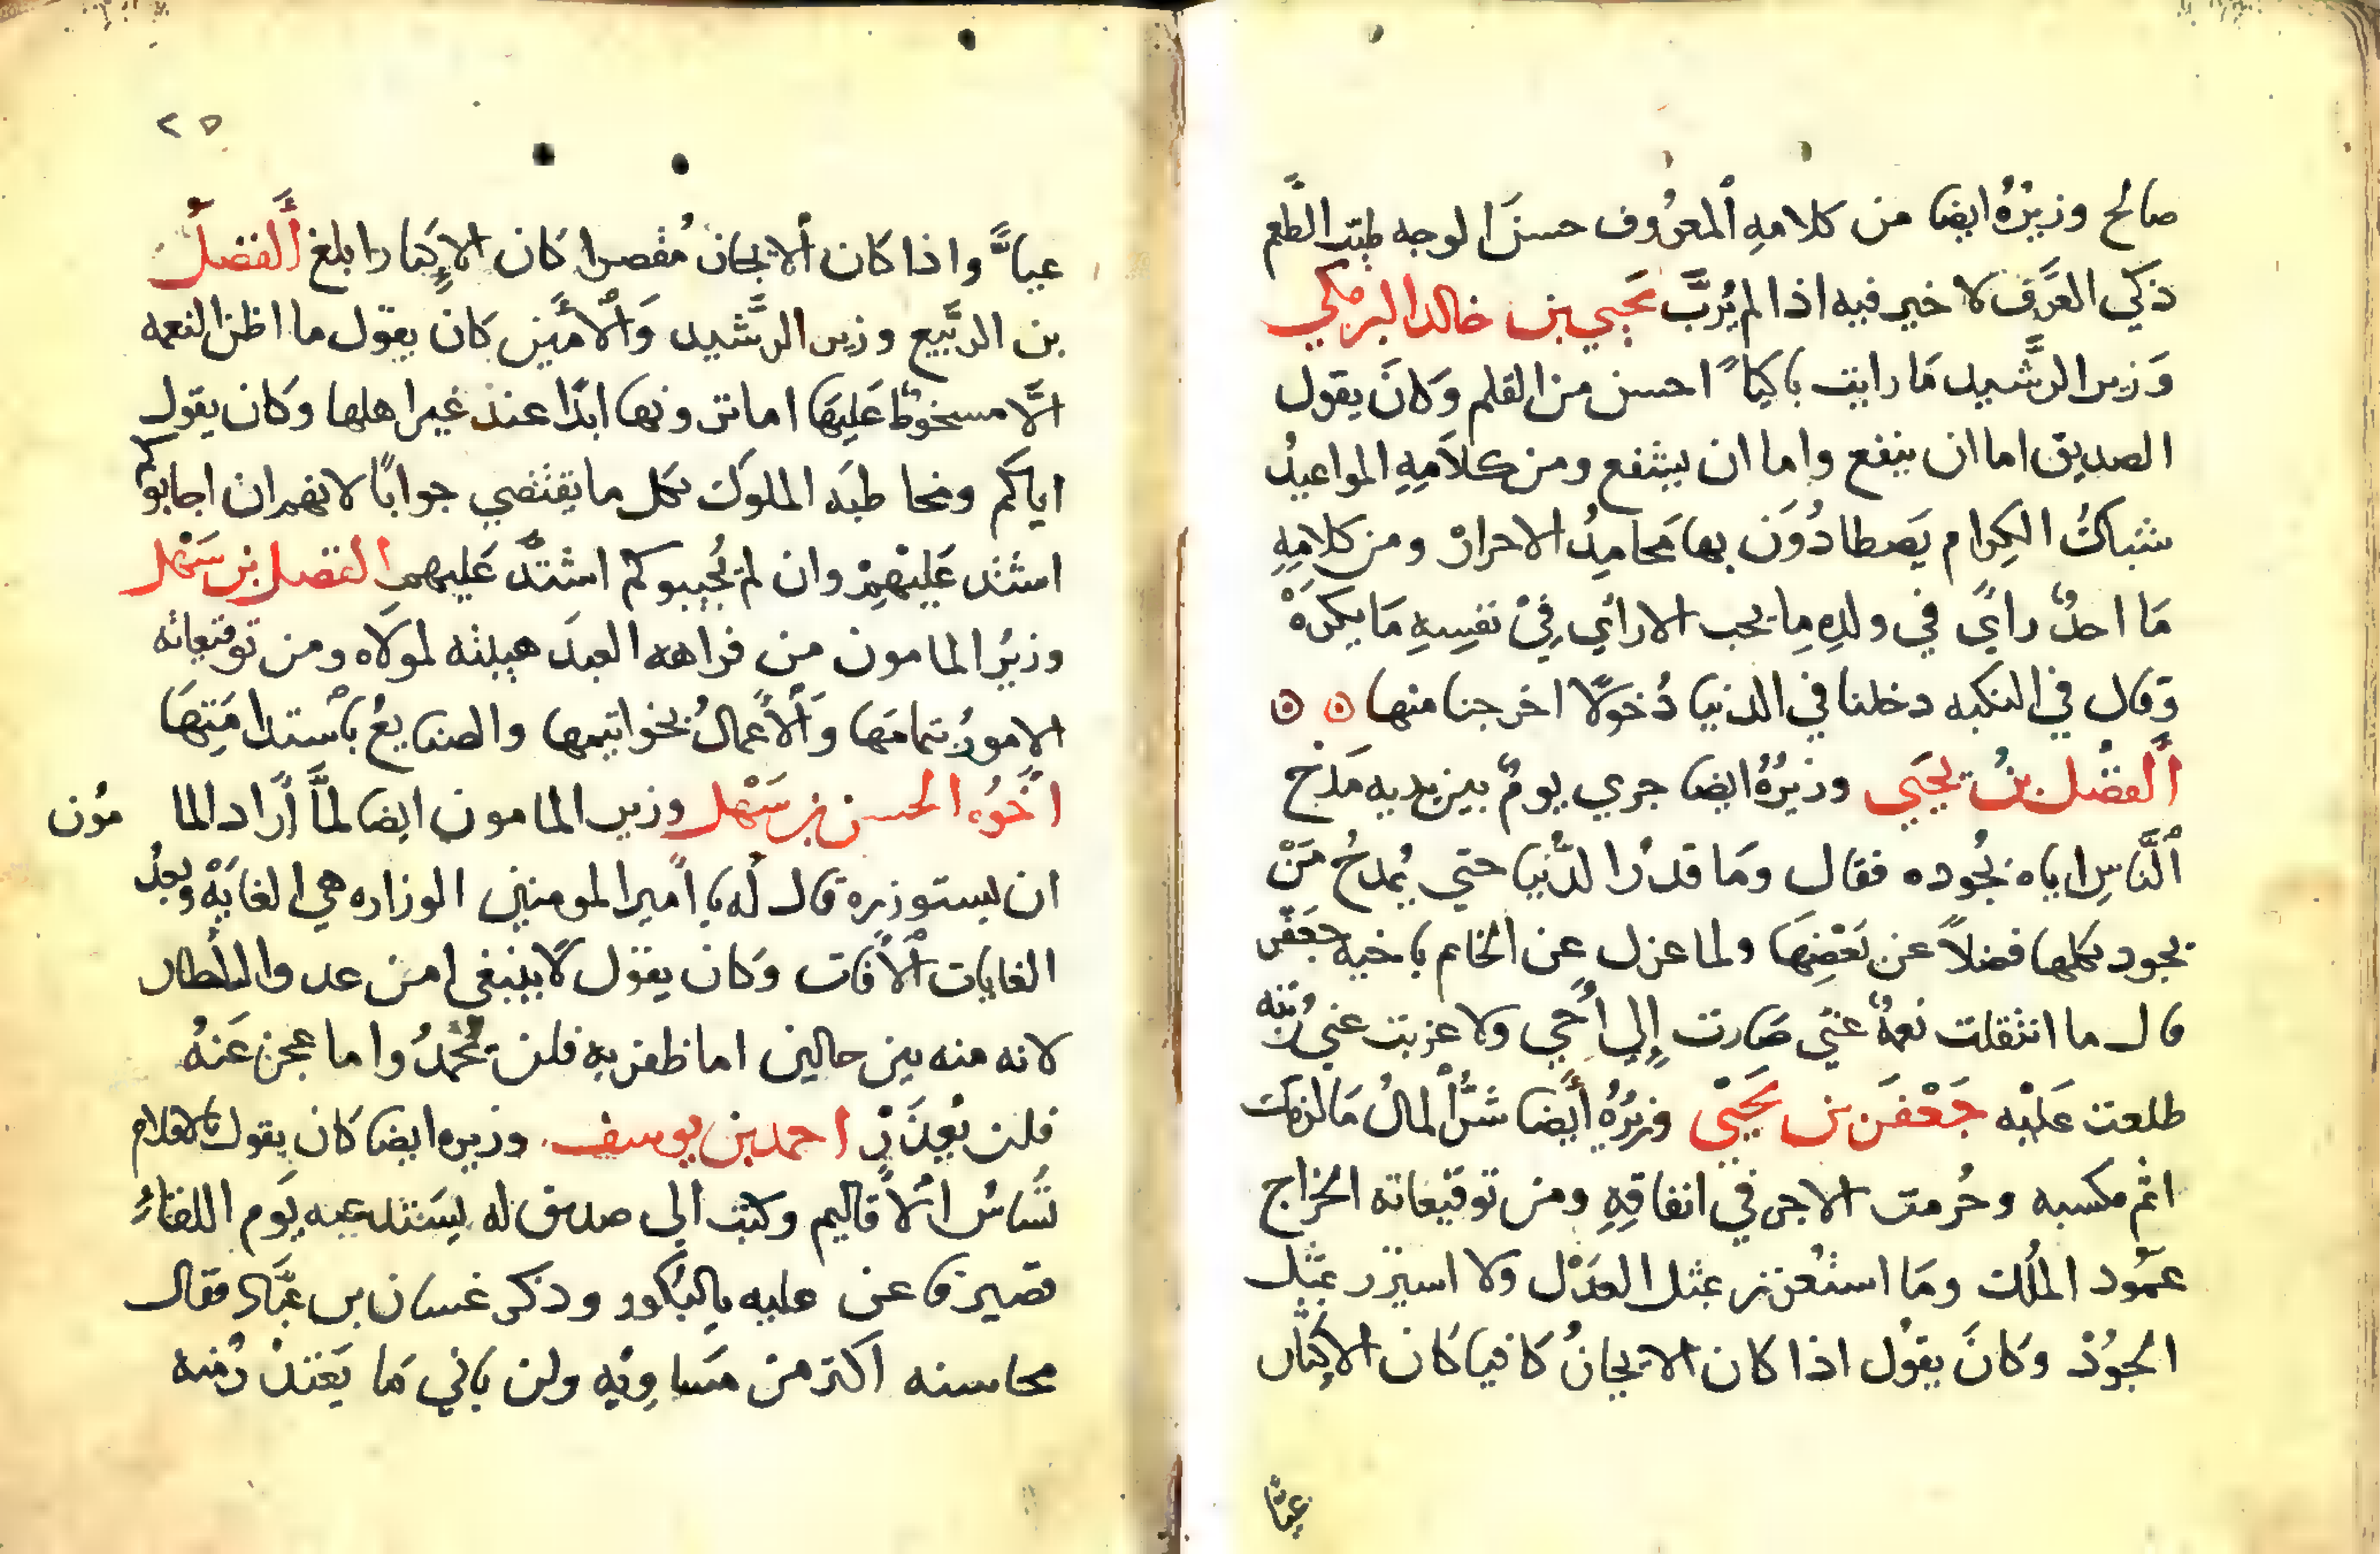 صالح وزيرُهُ ايضا من كلامهِ ٱلمعرُوف حسنَ الوجه طيّب الطَّعم
ذكي العَرَف لا خير فيه اذا لم يُرَبَّ يَحيي بن خالد البرمكي
وَزير الرَّشيد مَا رايت باكيًا احسن من القلم وَكانَ يقول
الصديق اما ان ينفع واما ان يشفع ومن كلامِهِ المواعيدُ
شباكُ الكِرام يَصطادُوَن بها مَحامِدُ الاحرار ومن كلامِهِ
مَا احدٌ راي في ولدِهِ ما يحب الا راي في نفسِهِ مَا يكرَهْ
وقال في النكبه دخلنا في الدنيا دُخولًا اخرجنا منها ه ه
ألفضْل بنُ يحيَي وزيرُهُ ايضا جري يومٌ بين يديه مَدْح
ٱلنَّاسِ اياه بجُوده فقال وَمَا قدرُ الدُّنيا حتي يُمدحُ مَنْ
يجود بكلها فضلاً عن بَعْضِهَا ولما عزل عن الخاتم باخيه جَعْفَر
قال ما انتقلت نعمةٌ عنّي صَارت إلي أخي ولا عزبت عني رُتبه
طلعت عَلَيْه جَعْفَر بن يَحيَى وزيرُهُ أيضا شرُّ ٱلمالُ مَا لزمك
اثم مكسبه وحُرمت الاجر في انفاقِهِ ومن توقيعاته الخراج
عمُود المُلك وَمَا استُغزر بمثل العدَل ولا استنزر بمثل
الجوُدْ وكانَ يقوُل اذا كان الايجازُ كافيا كان الاكثار
عيًّا
٢٥
عيًّا واذا كان ٱلايجاز مُقصرا كان الاكثار ابلغ ألفضلُ
بن الرّبيع وزير الرَّشيد وَٱلأمين كانَ يقول ما اظن النعمه
الَّا مسخوطٌ عَليهَا اما ترونها ابدًا عندَ غير اهلها وكان يقول
اياكم ومخاطبَه الملوكَ بكل ما يقتضي جوابًا لانهم ان اجابوكم
اشتد عَليهِم وان لمْ يُجيبوكم اشتدَّ عَليهم الفضل بن سَهْل
وزيرُ المامون من فراهه العبدَ هيبته لمولاه ومن توقيعاته
الامورُ بتمامهَا وَٱلأعمالُ بخواتيمها والصنايعُ بٱستدامَتِهَا
اخُوُه الحسن بن سَهْل وزير المامون ايضا لمَّا أرَاد المامُون
ان يستوزره قال لُه يا أمير المومنين الوزاره هي الغايَةْ وبعدُ
الغايات ٱلأفات وَكان يقوُل لا ينبغي امن عدو السلطان
لانه منه بين حالين اما ظفر به فلن تُحْمدُ واما عجز عَنهُ
فلن تُعذَرْ احمد بن يوسف وزيره ايضا كان يقول بالاقلام
تُسَاسُ ٱلأقاليم وكتب الي صديق له يَستدعيه يَوم اللقاءُ
قصير فاعن عليه بالبكور وذكر غسان بن عبَّاد فقال
محاسنه اكثر من مسَاوِيه ولن ياتي مَا يَعتذرُ منه